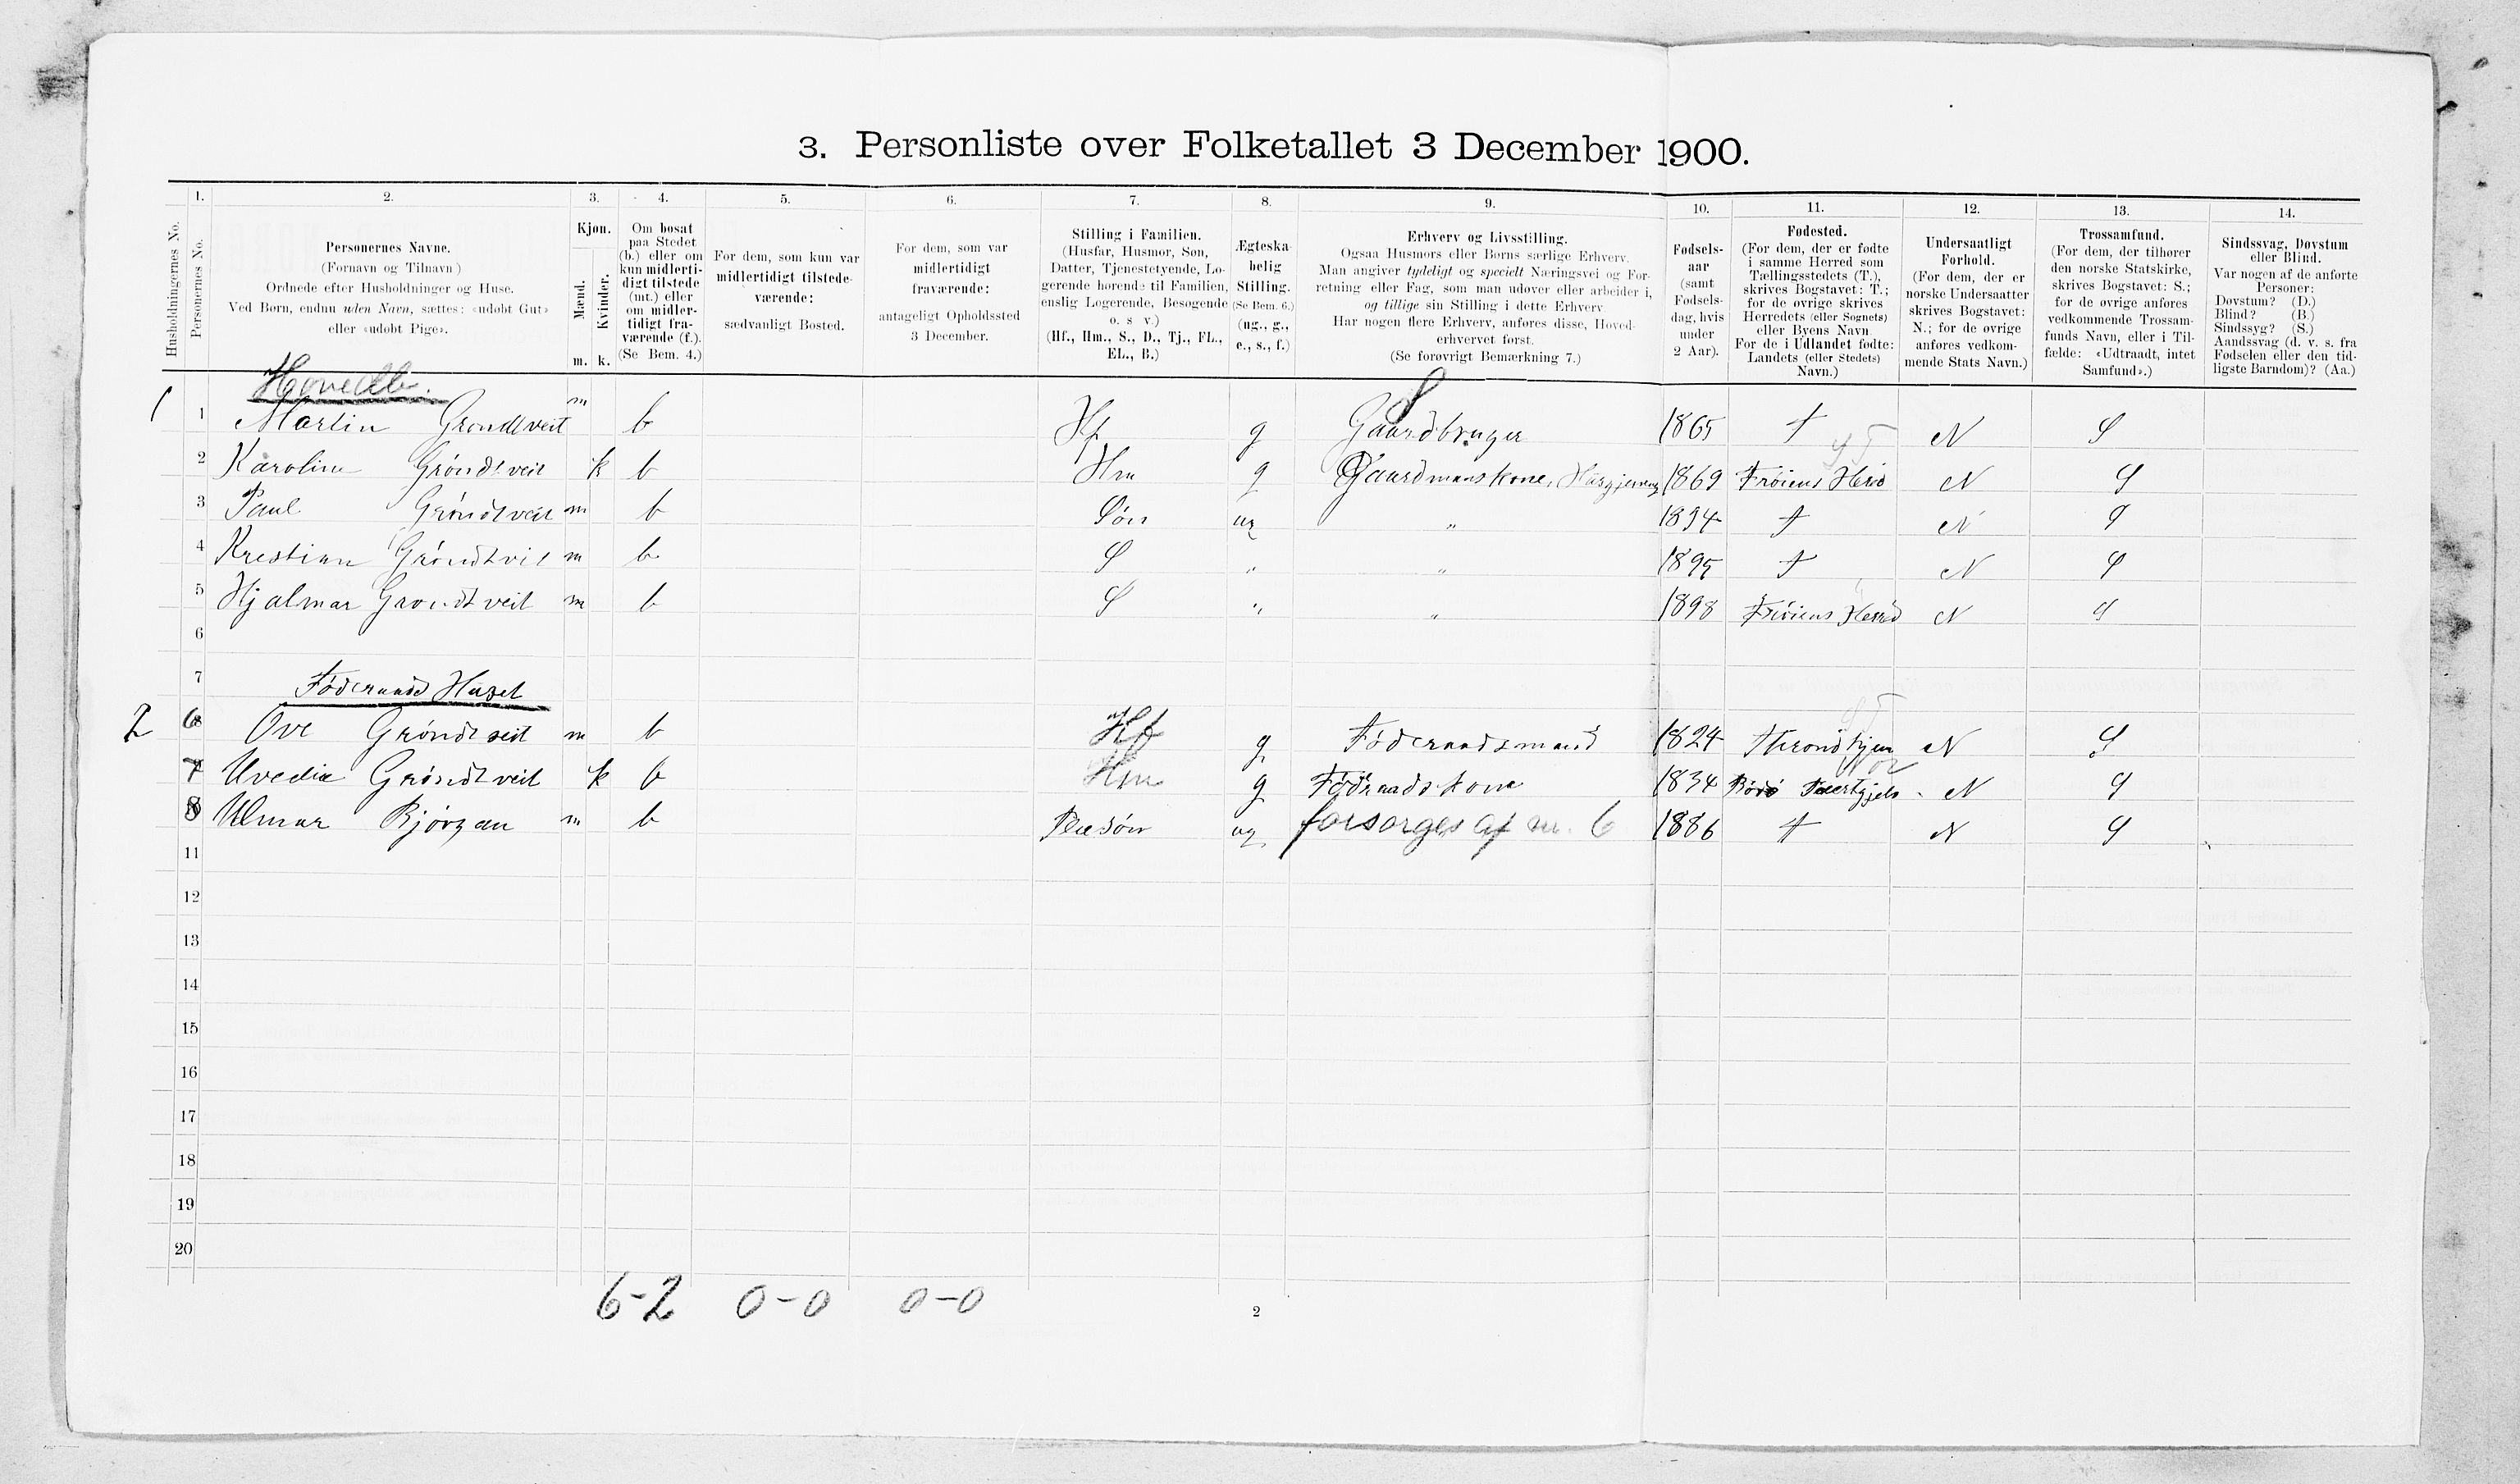 3. Personliste over Folketallet 3 December 1900.
1. 2. 3. 4. 5. 6. 7. 8. 9. 10. 11. 12. 13. 14.
Husholdningernes No.
Personernes No.
Personernes Navne.
(Fornavn og Tilnavn)
Ordnede efter Husholdninger og Huse.
Ved Børn, endnu uden Navn, sættes: «udøbt Gut»
eller «udøbt Pige».
Kjøn.
Mænd.
Kvinder.
m. k.
Om bosat
paa Stedet
(b.) eller om
kun midlerti-
digt tilstede
(mt.) eller
om midler-
tidigt fra-
værende (f.).
(Se Bem. 4.)
For dem, som kun var
midlertidigt tilstede-
værende:
sædvanligt Bosted.
For dem, som var
midlertidigt
fraværende:
antageligt Opholdssted
3 December.
Stilling i Familien.
(Husfar, Husmor, Søn,
Datter, Tjenestetyende, Lo-
gerende hørende til Familien,
enslig Logerende, Besøgende
o. s. v.)
(Hf., Hm., S., D., Tj., FL.,
EL., B.)
Ægteska-
belig
Stilling.
(Se Bem. 6.)
(ug., g.,
e., s., f.)
Erhverv og Livsstilling.
Ogsaa Husmors eller Børns særlige Erhverv.
Man angiver tydeligt og specielt Næringsvei og For-
retning eller Fag, som man udøver eller arbeider i,
og tillige sin Stilling i dette Erhverv.
Har nogen flere Erhverv, anføres disse, Hoved-
erhvervet først.
(Se forøvrigt Bemærkning 7.)
Fødsels-
aar
(samt
Fødsels-
dag, hvis
under
2 Aar).
Fødested.
(For dem, der er fødte
i samme Herred som
Tællingsstedets (T.),
skrives Bogstavet: T.;
for de øvrige skrives
Herredets (eller Sognets)
eller Byens Navn.
For de i Udlandet fødte:
Landets (eller Stedets)
Navn.)
Undersaatligt
Forhold.
(For dem, der er
norske Undersaatter
skrives Bogstavet:
N.; for de øvrige
anføres vedkom-
mende Stats Navn.)
Trossamfund.
(For dem, der tilhører
den norske Statskirke,
skrives Bogstavet: S.;
for de øvrige anføres
vedkommende Trossam-
funds Navn, eller i Til-
fælde: «Udtraadt, intet
Samfund».)
Sindssvag, Døvstum
eller Blind.
Var nogen af de anførte
Personer:
Døvstum? (D.)
Blind? (B.)
Sindssyg? (S.)
Aandssvag (d. v. s. fra
Fødselen eller den tid-
ligste Barndom)? (Aa.)
1 1 Martin Grøndtveit m b Hf g Gaardbruger 1865 T N S
2 Karoline Grøndtveit k b Hm g Gaardmanskone, 1869 Frøiens Herred N S
3 Paul Grøndtveit m b Søn ug " 1894 T N S
4 Krestian Grøndtveit m b S " " 1895 T N S
5 Hjalmar Grøndtveit m b S " " 1898 Frøiens Herred N S
6
7 Føderaads Huset
2 6 Ove Grøndtveit m b Hf g Føderaadsmand 1824 Throndhjem N S
7 Uvedia Grøndtveit k b Hm g Føderaadskone 1834 N S
8 m b ug forsørges af nr. 6 1886 T N S
11
12
13
14
15
16
17
18
19
20
6-2 0-0 0-0
2